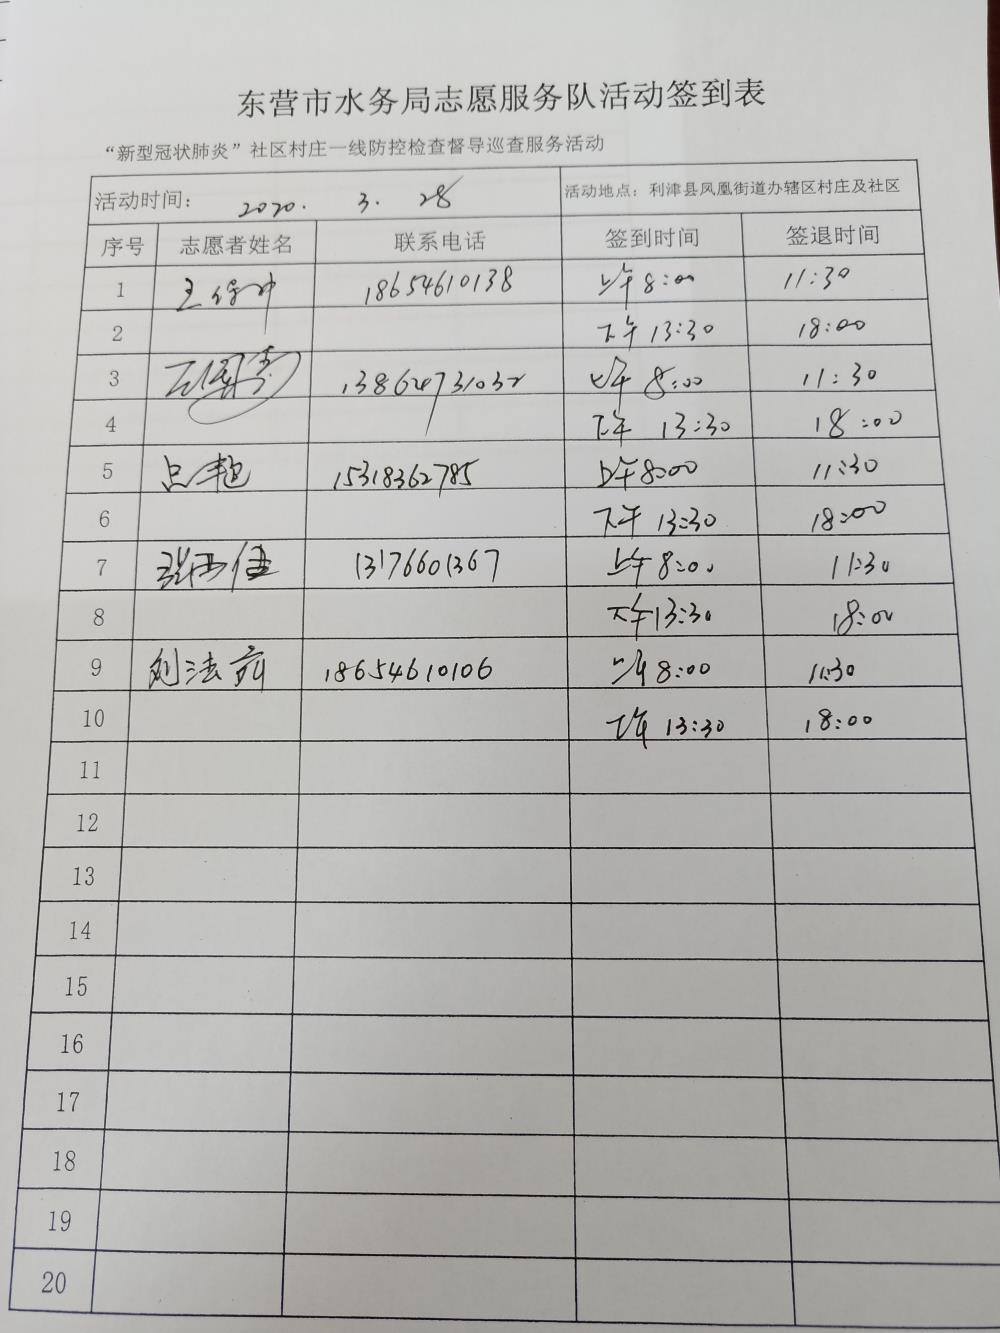 东营市水务局志愿服务队活动签到表
“新型冠状肺炎”社区村庄一线防控检查督导巡查服务活动
活动时间: 2020. 3. 28 活动地点: 利津县凤凰街道办辖区村庄及社区
序号 志愿者姓名 联系电话 签到时间 签退时间
1 王 18654610138 上午8:00 11:30
2 下午13:30 18:00
3 13864731032 上午8:00 11:30
4 下午 13:30 18:00
5 15318362785 上午8:00 11:30
6 下午 13:30 18:00
7 张西佳 13176601367 上午8:00 11:30
8 下午13:30 18:00
9 刘法 18654610106 上午8:00 11:30
10 下午 13:30 18:00
11
12
13
14
15
16
17
18
19
20